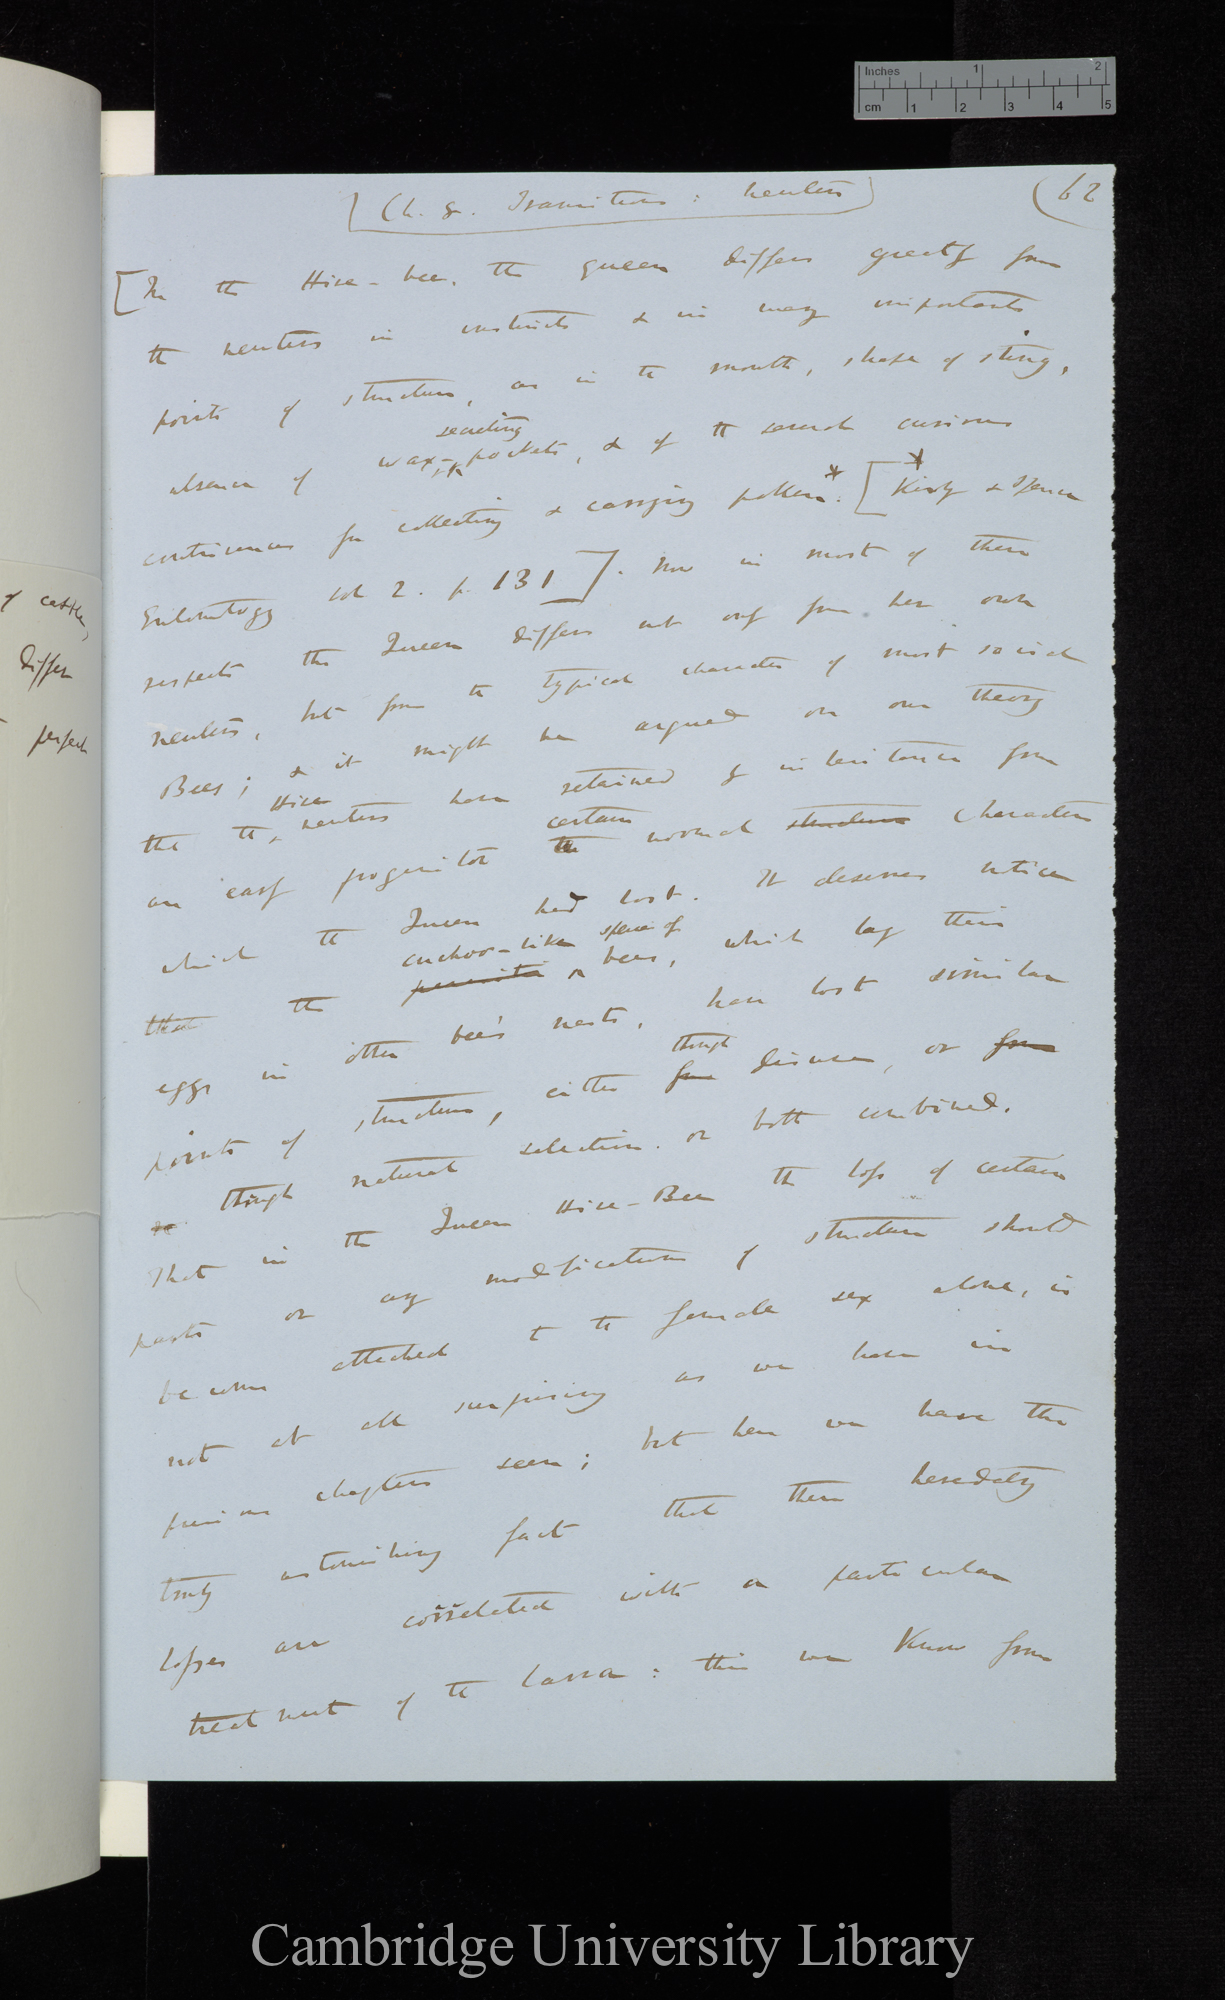 Inches 1 2
cm 1 2 3 4 5
(Ch. 8. Transitions : neuters) (62
[In the Hive-bee, the queen differs greatly from
the neuters in instincts & in many important
points of structure, as in the mouth, shape of sting,
secreting
absence of wax-pockets, & of the several curious
contrivances for collecting & carrying pollen*. [*Kirby & Spence
Entomology vol 2. p. 131]. Now in most of these
respects the Queen differs not only from her own
neuters, but from the typical character of most social
Bees; & it might be argued on our theory
Hive
that the neuters have retained by inheritance from
certain
an early progenitor the normal structure characters
which the Queen had lost. It deserves notice
cuckoo-like species of
that the parasitic bees, which lay their
eggs in other bee's nests, have lost similar
through
points of structure, either from disuse, or from
through natural selection or both combined.
That in the Queen Hive-Bee the loss of certain
parts or any modification of structure should
become attached to the female sex alone, is
not at all surprising as we have in
previous chapters seen; but here we have the
truly astonishing fact that these hereditary
losses are correlated with a particular
treatment of the larva : this we know from
of cattle,
differ
perfect
Cambridge University Library